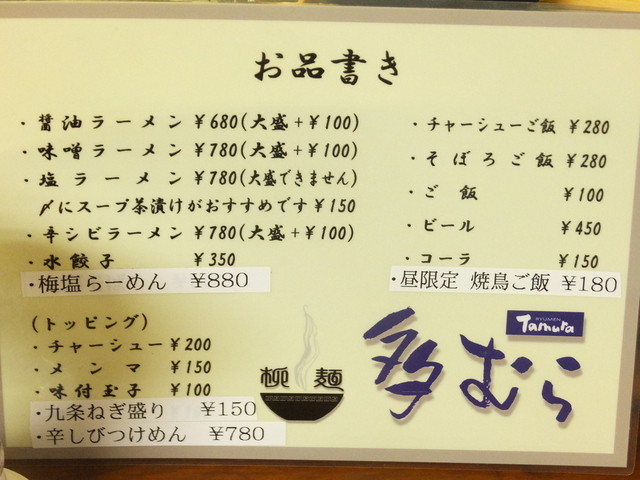 お品書き
・醤油ラーメン ¥680(大盛+¥100)
・味噌ラーメン ¥780(大盛+¥100)
・塩ラーメン ¥780(大盛できません)
〆にスープ茶漬けがおすすめです¥150
・辛シビラーメン ¥780(大盛+¥100)
・水餃子 ¥350
・梅塩らーめん ¥880
(トッピング)
・チャーシュー ¥200
・メンマ ¥150
・味付玉子 ¥100
・九条ねぎ盛り ¥150
・辛しびつけめん ¥780
・チャーシューご飯 ¥280
・そぼろご飯 ¥280
・ご飯 ¥100
・ビール ¥450
・コーラ ¥150
・昼限定 焼鳥ご飯 ¥180
柳麺
RYUMEN
Tamura
多むら